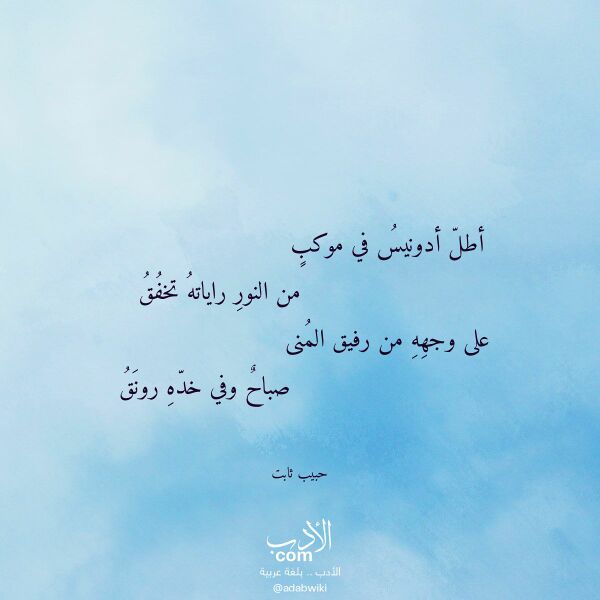 أطلّ أدونيسُ في موكبٍ
من النورِ راياتهُ تخفُقُ
على وجهِهِ من رفيق المُنى
صباحٌ وفي خدّهِ رونَقُ
حبيب ثابت
الأدب
com
الأدب .. بلغة عربية
@adabwiki